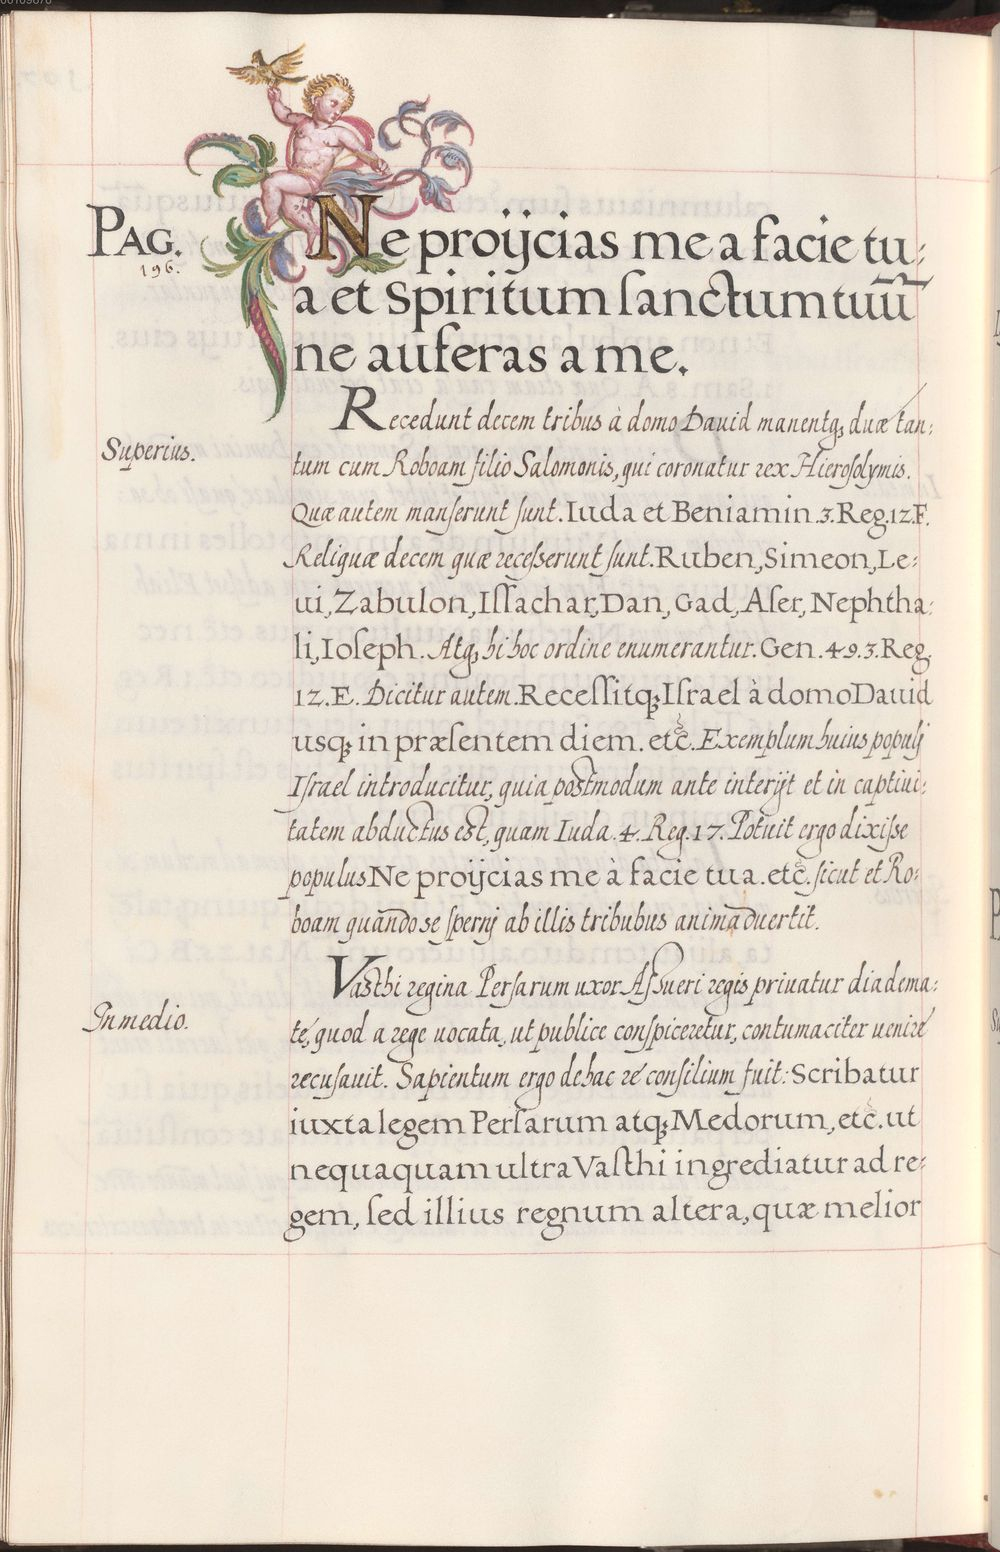 00109876
PAG.
196.
Ne proijcias me a facie tu:
a et Spiritum ſanctum tuū
ne auferas a me.
Superius.
Recedunt decem tribus à domo Dauid manentq; duæ tan:
tum cum Roboam filio Salomonis, qui coronatur rex Hieroſolymis.
Quæ autem manſerunt ſunt. Iuda et Beniamin. 3. Reg. 12. F.
Reliquæ decem quæ receſſerunt ſunt. Ruben, Simeon, Le:
ui, Zabulon, Iſſachar, Dan, Gad, Aſer, Nephtha:
li, Ioſeph. Atq; hi hoc ordine enumerantur. Gen. 49. 3. Reg.
12. E. Dicitur autem. Receſſitq; Iſrael à domo Dauid
usq; in præſentem diem. etc̃. Exemplum huius populi
Iſrael introducitur, quia postmodum ante interijt et in captiui:
tatem abductus est, quam Iuda. 4. Reg. 17. Potuit ergo dixiſse
populus Ne proijcias me à facie tua. etc̃. ſicut et Ro:
boam quando se ſperni ab illis tribubus animaduertit.
In medio.
Vasthi regina Perſarum uxor Aſſueri regis priuatur diadema:
te, quod a rege uocata, ut publice conſpiceretur, contumaciter uenire
recuſauit. Sapientum ergo de hac re conſilium fuit: Scribatur
iuxta legem Perſarum atq; Medorum, etc̃. ut
nequaquam ultra Vaſthi ingrediatur ad re:
gem, ſed illius regnum altera, quæ melior